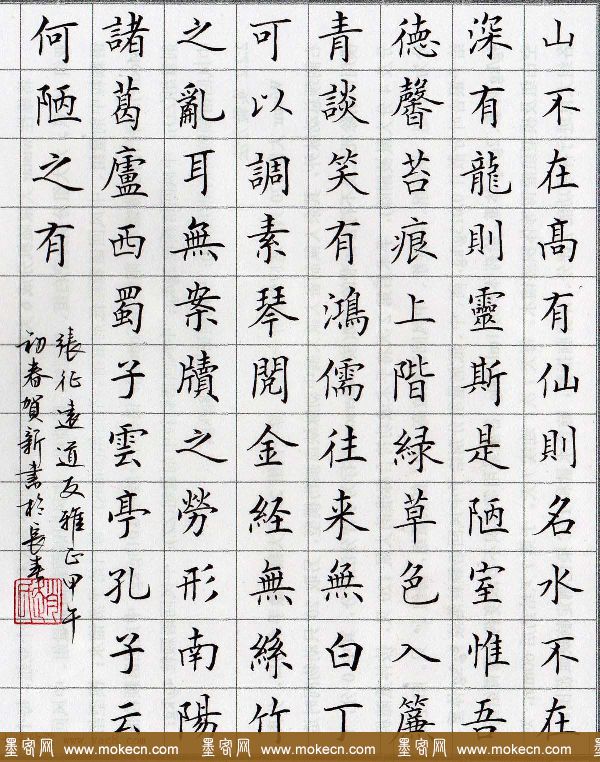 山不在髙有仙則名水不在
深有龍則靈斯是陋室惟吾
徳馨苔痕上階緑草色入簾
青談笑有鴻儒往来無白丁
可以調素琴閲金経無絲竹
之亂耳無案牘之勞形南陽
諸葛廬西蜀子雲亭孔子云
何陋之有
張征遠道友雅正甲午
初春賀新書於長春
墨客网 www.mokecn.com 墨客网 www.mokecn.com 墨客网 www.mokecn.com